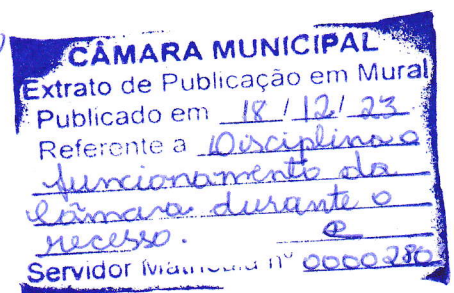 CÂMARA MUNICIPAL
Extrato de Publicação em Mural
Publicado em 18/12/23
Referente a Disciplina o
funcionamento da
Câmara durante o
recesso.
Servidor Matrícula nº 0000280